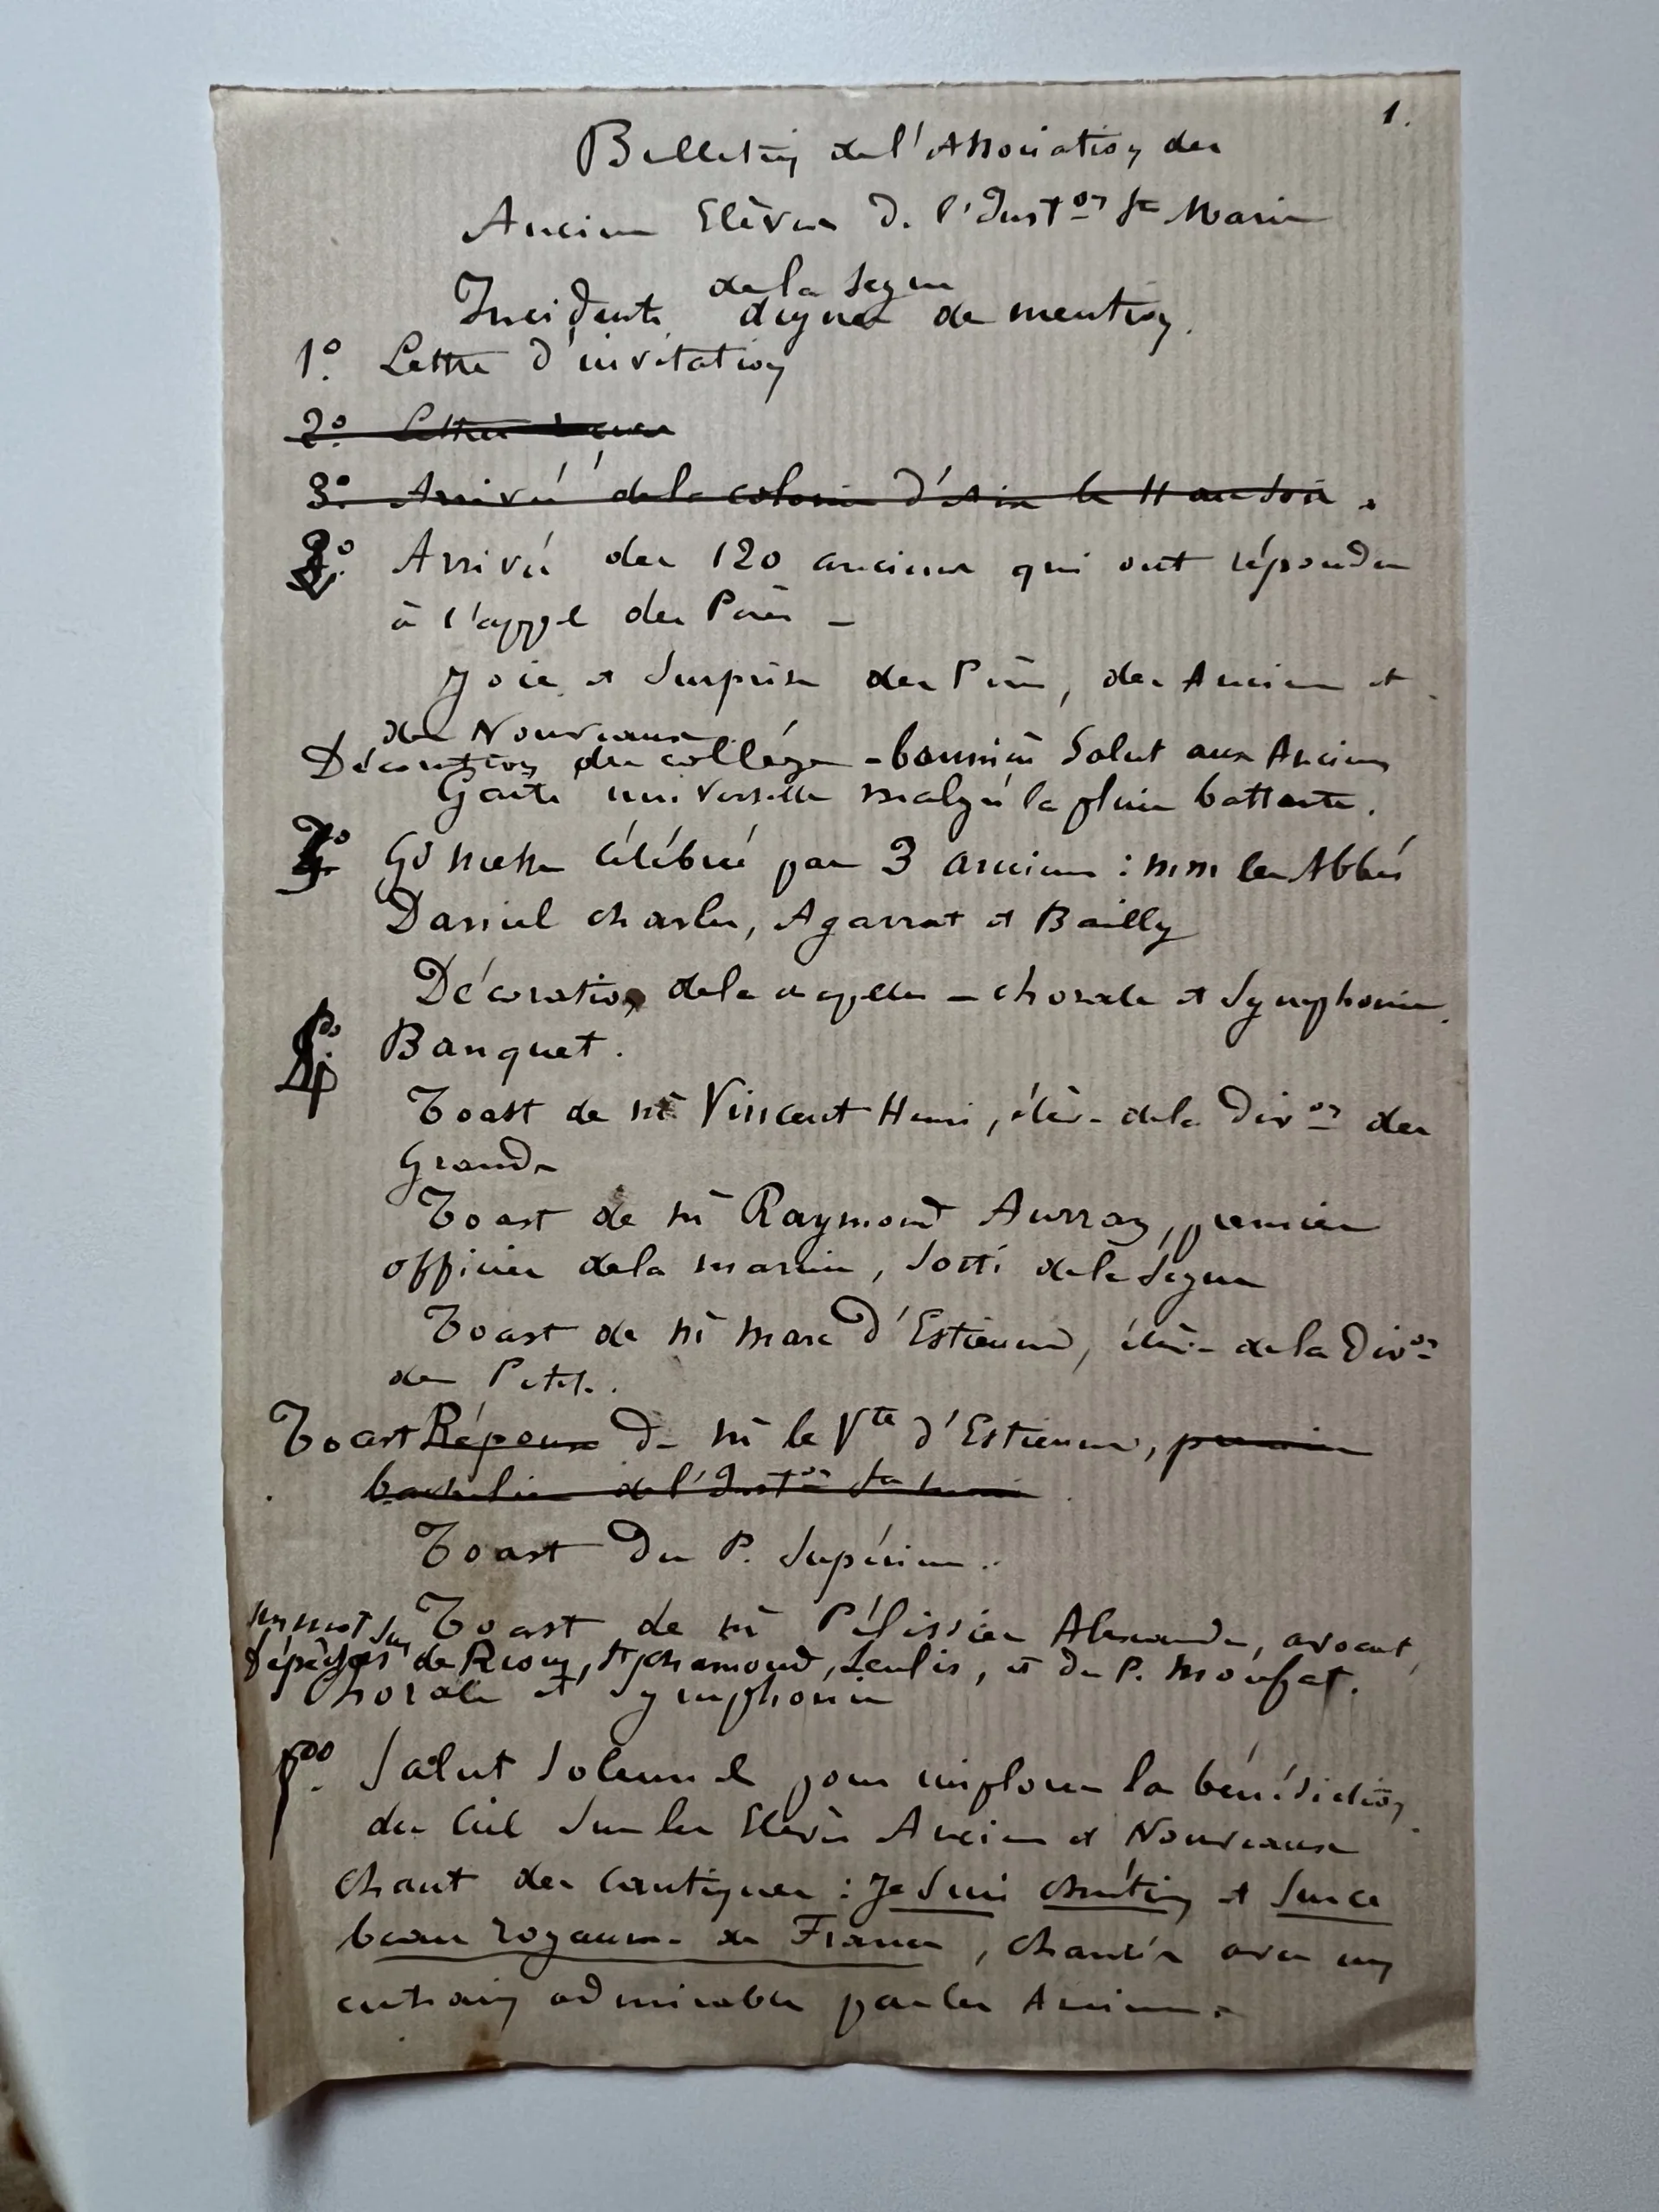 1.
Bulletin de l'Association des
Anciens Elèves de l'Inst.on Ste Marie
de la Seyne
Incidents dignes de mention.
1º. Lettre d'invitation
2º. Lettres
3º. Arrivée de la colonie d'Aix le soir.
2º. Arrivée des 120 anciens qui ont répondu
à l'appel des Pères –
Joie et Surprise des Pères, des Anciens et
des Nouveaux
Décoration du collège - bannière Salut aux Anciens
Gaité universelle malgré la pluie battante.
3º Gd Messe célébrée par 3 anciens : MM les Abbés
Daniel Charles, Agarrat et Bailly
Décoration de la chapelle – chorale et Symphonie.
4º. Banquet.
Toast de Mr Vincent Henri, élève de la Div.on des
Grands
Toast de Mr Raymond Auvray, premier
officier de la marine, sorti de la Seyne
Toast de Mr Marc d'Estienne, élève de la Div.on
des Petits.
Toast Réponse de Mr le Vte d'Estienne, premier
bachelier de l'Inst.on Ste Marie
Toast du P. Supérieur.
Toast de Mr Pélissier Alexandre, avocat,
un mot sur
dépêches de Riom, St Chamond, Senlis, et du P. Moufat.
Chorale et Symphonie
5º. Salut Solennel pour implorer la bénédiction
du Ciel sur les Elèves Anciens et Nouveaux
Chant des Cantiques : Je suis chrétien et Sur ce
beau royaume de France, chantés avec un
entrain admirable par les Anciens.